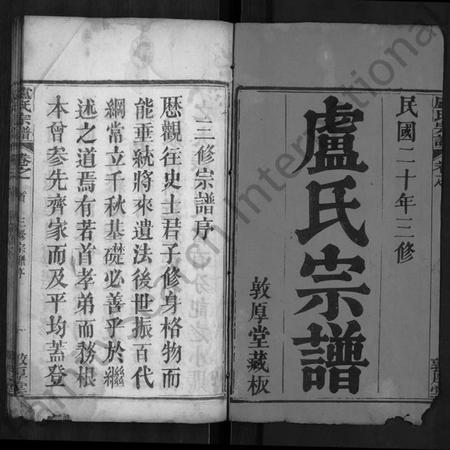 民國二十年三修
盧氏宗譜
敦厚堂藏板
三修宗譜序
歷觀往史士君子修身格物而
能垂統將來遺法後世振百代
綱常立千秋基礎必善乎於繼
述之道焉有若首孝弟而務根
本曾參先齊家而及平均蓋登
盧氏宗譜
卷之首
三修宗譜序
一
敦厚堂